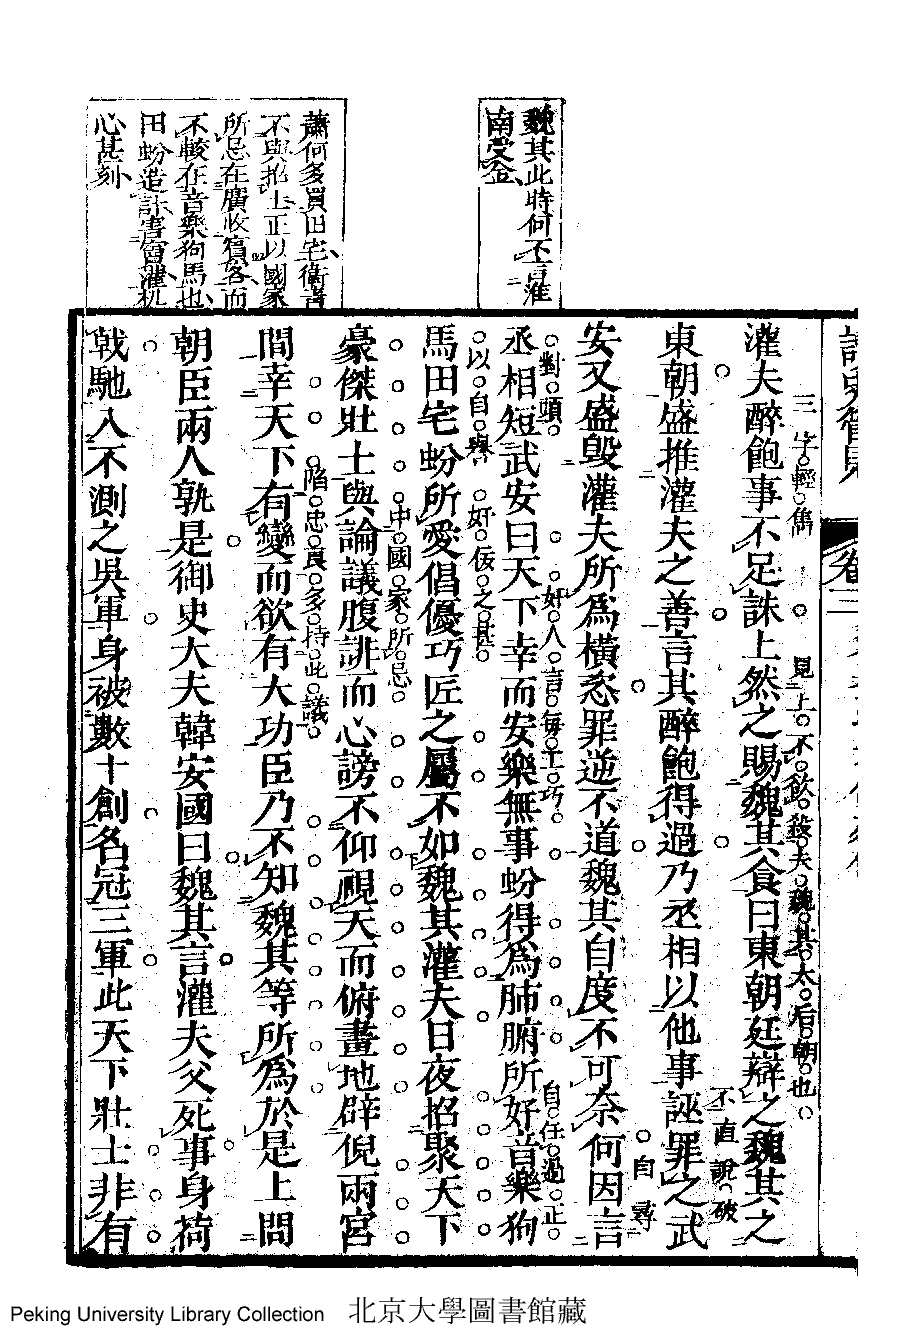 魏其此時何不言淮
南受金
蕭何多買田宅衛青
不與招士正以國家
所忌在廣收賓客而
不較在音樂狗馬也
田蚡造訐害竇灌机
心甚刻
卷三
灌夫醉飽事不足誅上然之賜魏其食曰東朝廷辯之魏其之
三字輕雋
見上不欲殺夫魏其太后朝也
東朝盛推灌夫之善言其醉飽得過乃丞相以他事誣罪之武
不直說破
安又盛毀灌夫所為橫恣罪逆不道魏其自度不可奈何因言
自尋
對頭
丞相短武安曰天下幸而安樂無事蚡得為肺腑所好音樂狗
奸人言每工巧
自任過正
以自舉
馬田宅蚡所愛倡優巧匠之屬不如魏其灌夫日夜招聚天下
奸佞之甚
豪傑壯士與論議腹誹而心謗不仰視天而俯畫地辟倪兩宮
中國家所忌
間幸天下有變而欲有大功臣乃不知魏其等所為於是上問
陷忠良多持此議
朝臣兩人孰是御史大夫韓安國曰魏其言灌夫父死事身荷
戟馳入不測之吳軍身被數十創名冠三軍此天下壯士非有
Peking University Library Collection 北京大學圖書館藏